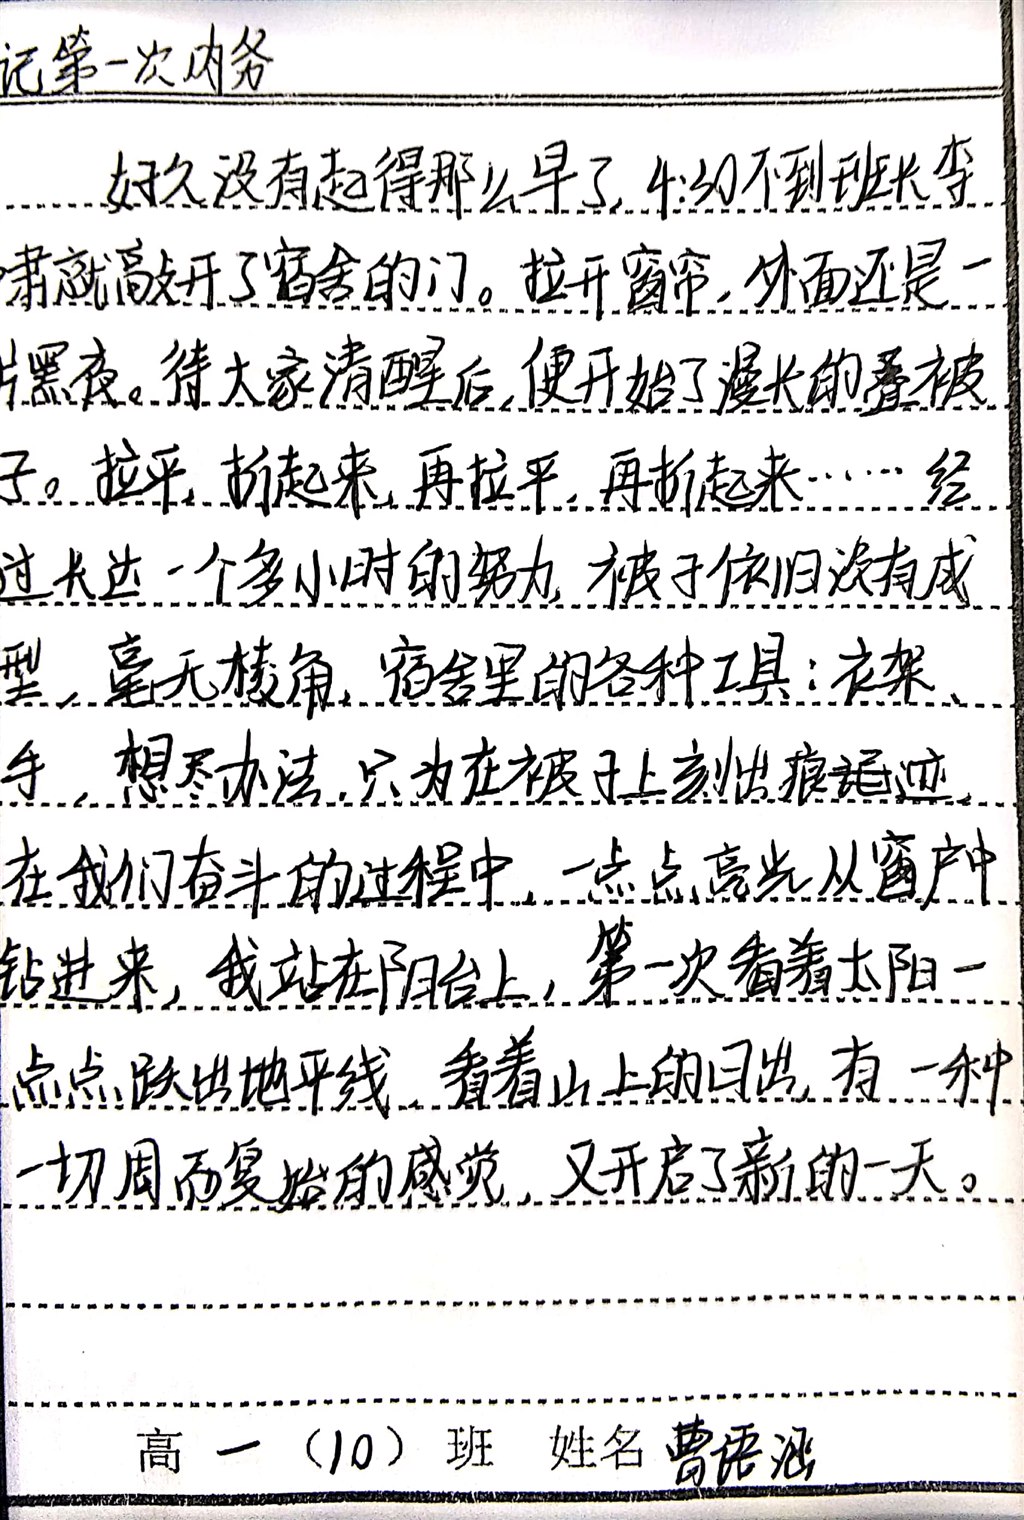 记第一次内务
好久没有起得那么早了，4:30不到班长李
啸就敲开了宿舍的门。拉开窗帘，外面还是一
片黑夜。待大家清醒后，便开始了漫长的叠被
子。拉平，折起来，再拉平，再折起来……经
过长达一个多小时的努力，被子依旧没有成
型，毫无棱角，宿舍里的各种工具：衣架、
手，想尽办法，只为在被子上刻出痕迹，
在我们奋斗的过程中，一点点亮光从窗户中
钻进来，我站在阳台上，第一次看着太阳一
点点跃出地平线，看着山上的日出，有一种
一切周而复始的感觉，又开启了新的一天。
高一（10）班 姓名曹语涵